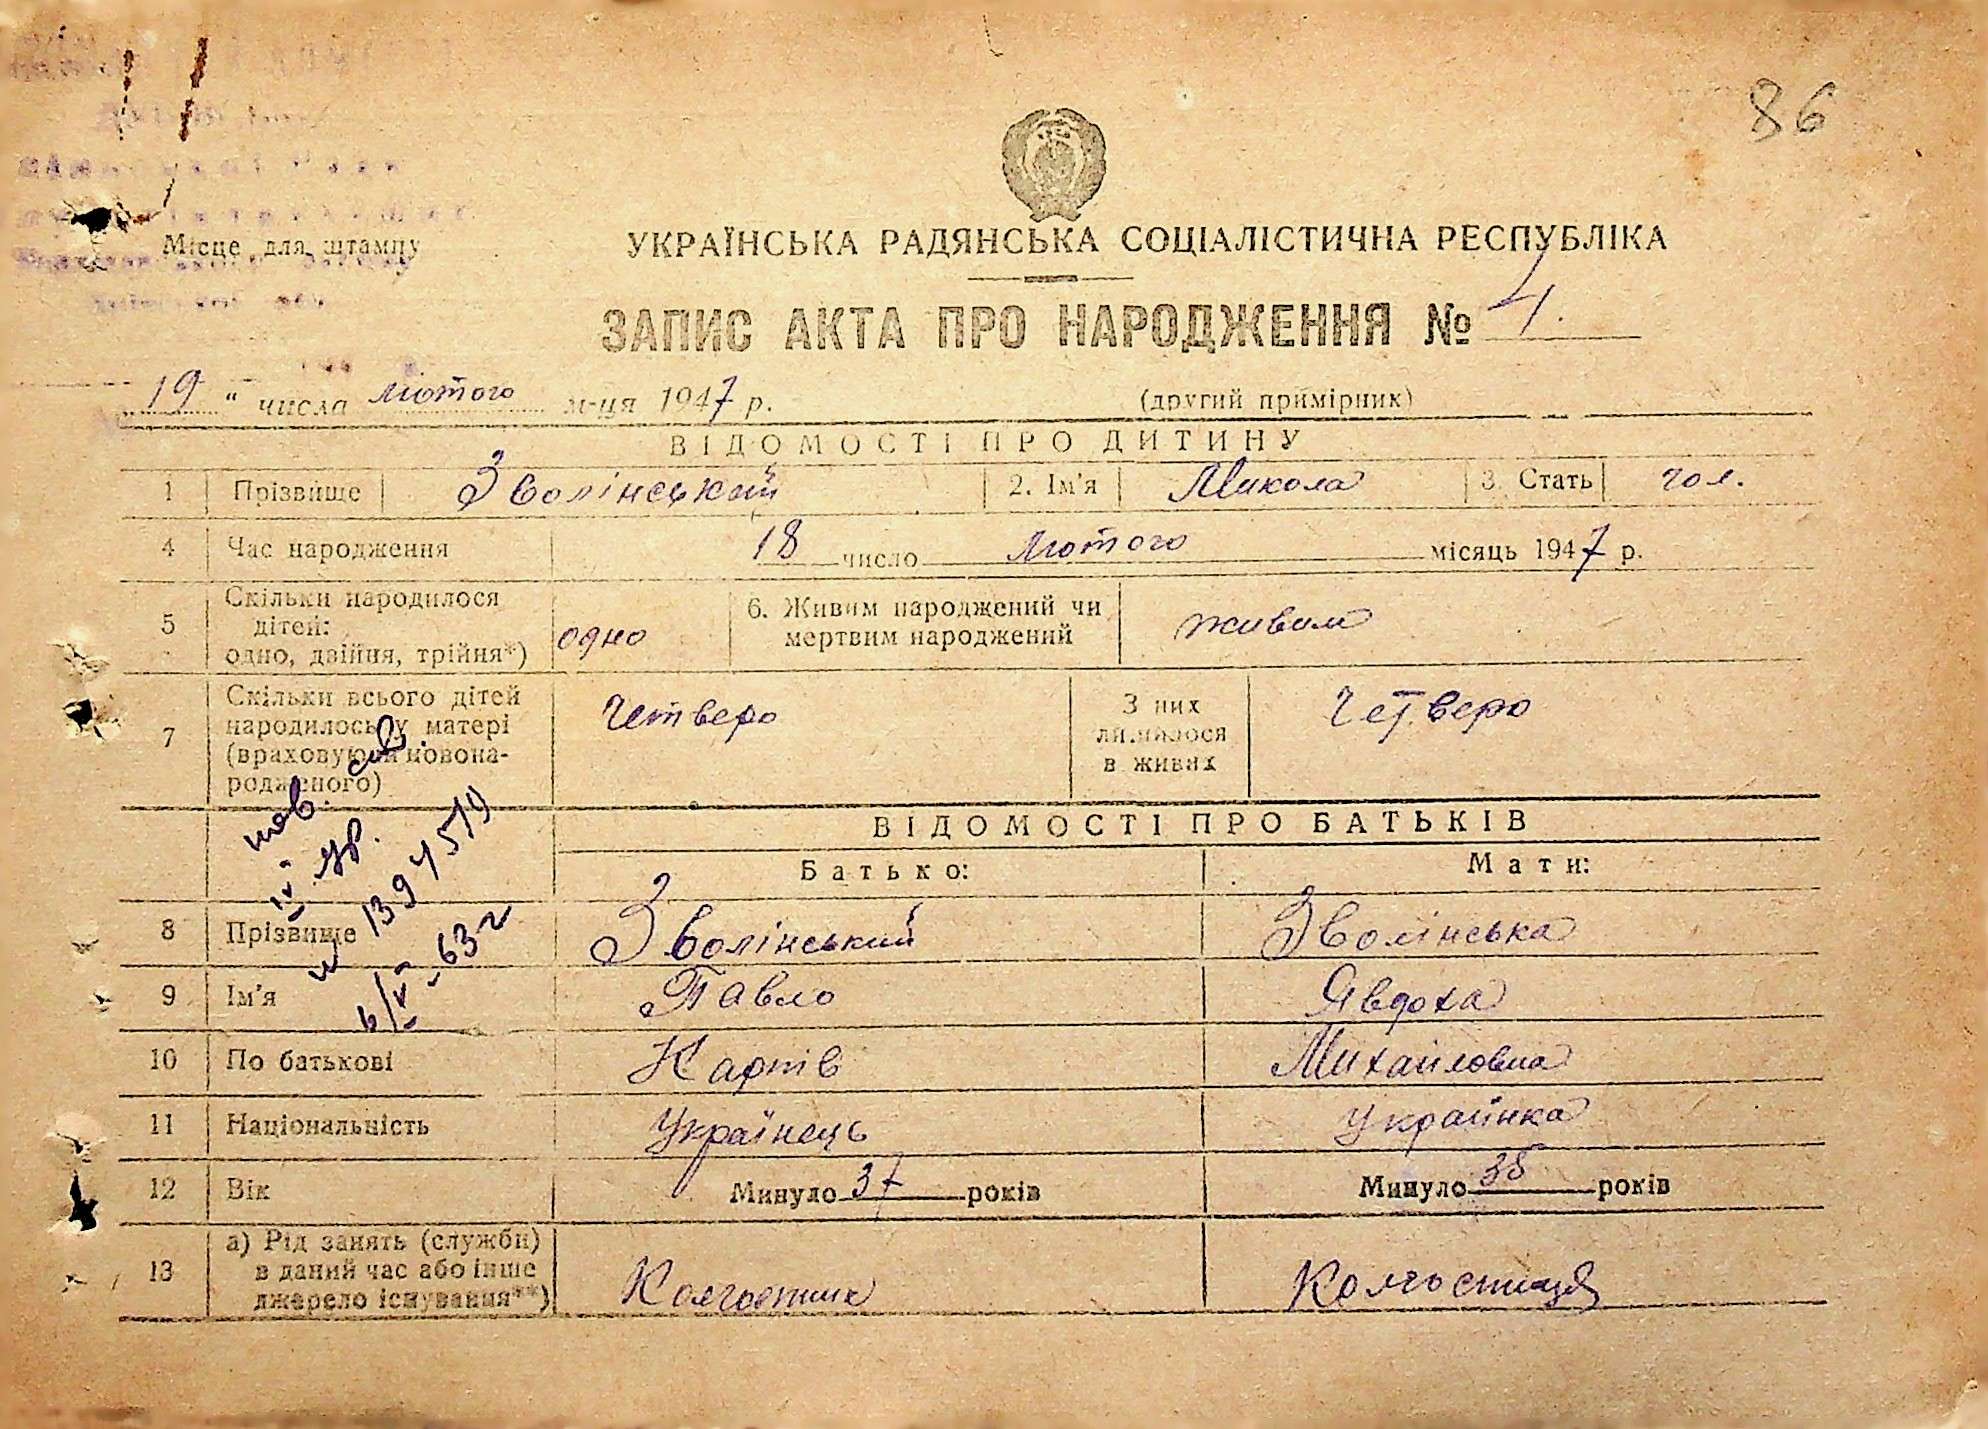 86
Місце для штампу
УКРАЇНСЬКА РАДЯНСЬКА СОЦІАЛІСТИЧНА РЕСПУБЛІКА
ЗАПИС АКТА ПРО НАРОДЖЕННЯ № 4.
„19“ числа лютого м-ця 1947 р. (другий примірник)
ВІДОМОСТІ ПРО ДИТИНУ
1 Прізвище Зволінський 2. Ім'я Микола 3. Стать чол.
4 Час народження 18 число лютого місяць 1947 р.
5 Скільки народилося дітей: одно, двійня, трійня*) одно 6. Живим народжений чи мертвим народжений живим
7 Скільки всього дітей народилось у матері (враховуючи новонародженого) Четверо З них лишилося в живих Четверо
ВІДОМОСТІ ПРО БАТЬКІВ
Батько: Мати:
8 Прізвище Зволінський Зволінська
9 Ім'я Павло Явдоха
10 По батькові Карпів Михайловна
11 Національність Українець Українка
12 Вік Минуло 37 років Минуло років
13 а) Рід занять (служби) в даний час або інше джерело існування**) Колгоспник Колгоспниця
IV ур.
1394579
6/V-63 г